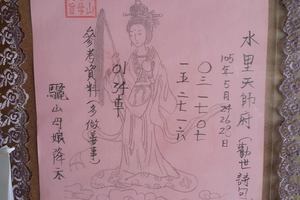 水里天師府(勸世詩句)
105年5月24 26 28日
〇三一七〇七
一五二七一六
0134車
參考資料(多做善事)
驪山母娘降示